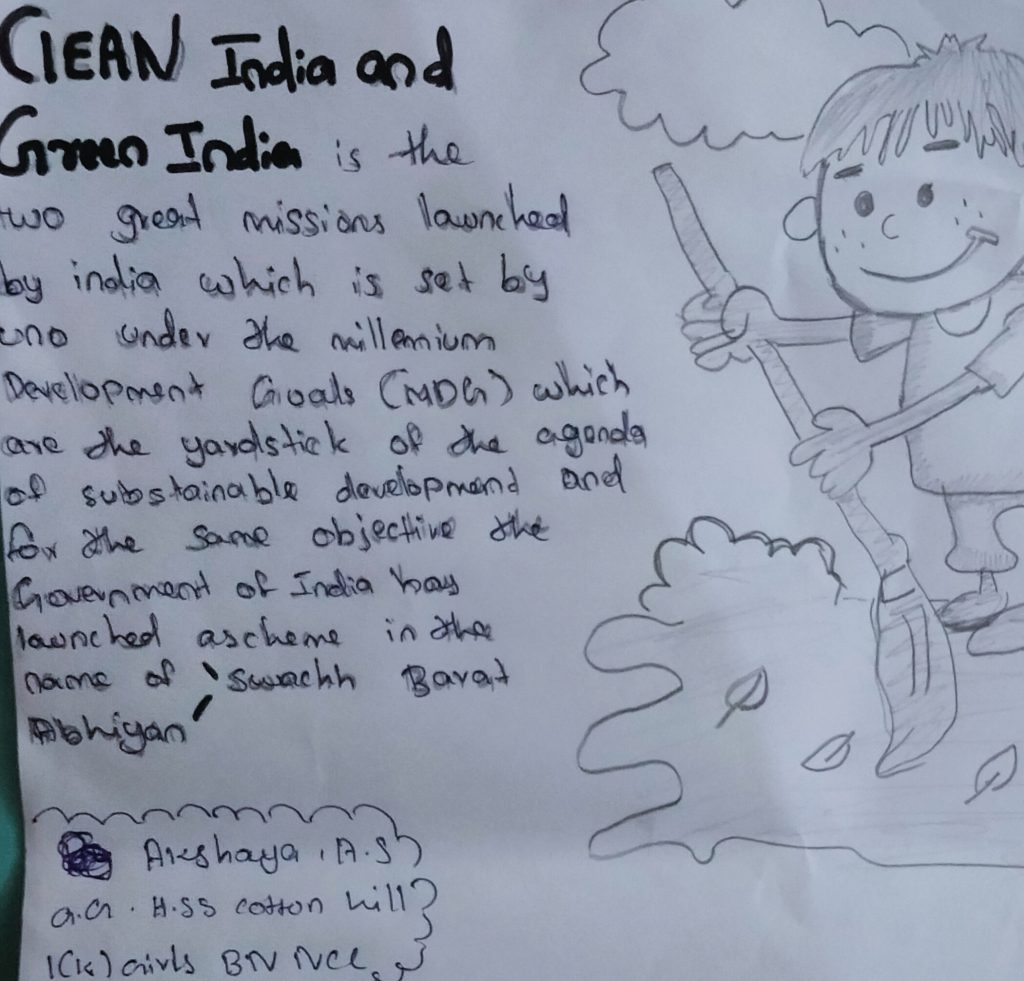 ClEAN India and
Green India is the
two great missions launched
by india which is set by
uno under the millemium
Development Goals (MDG) which
are the yardstick of the agenda
of substainable developmend and
for the same objective the
Government of India hay
launched a scheme in the
name of 'Swachh Barat
Abhiyan'
Akshaya . A.S
G.G. H.SS cotton hill
1(K) Girls BN NCC